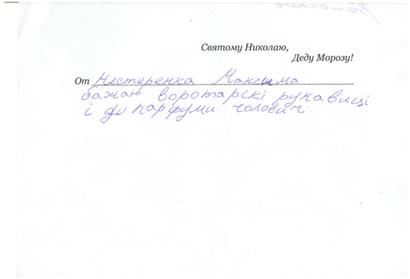 Святому Николаю,
Деду Морозу!
От Нестеренка Максима
бажаю воротарскі рукавиці
і парфуми чоловіч